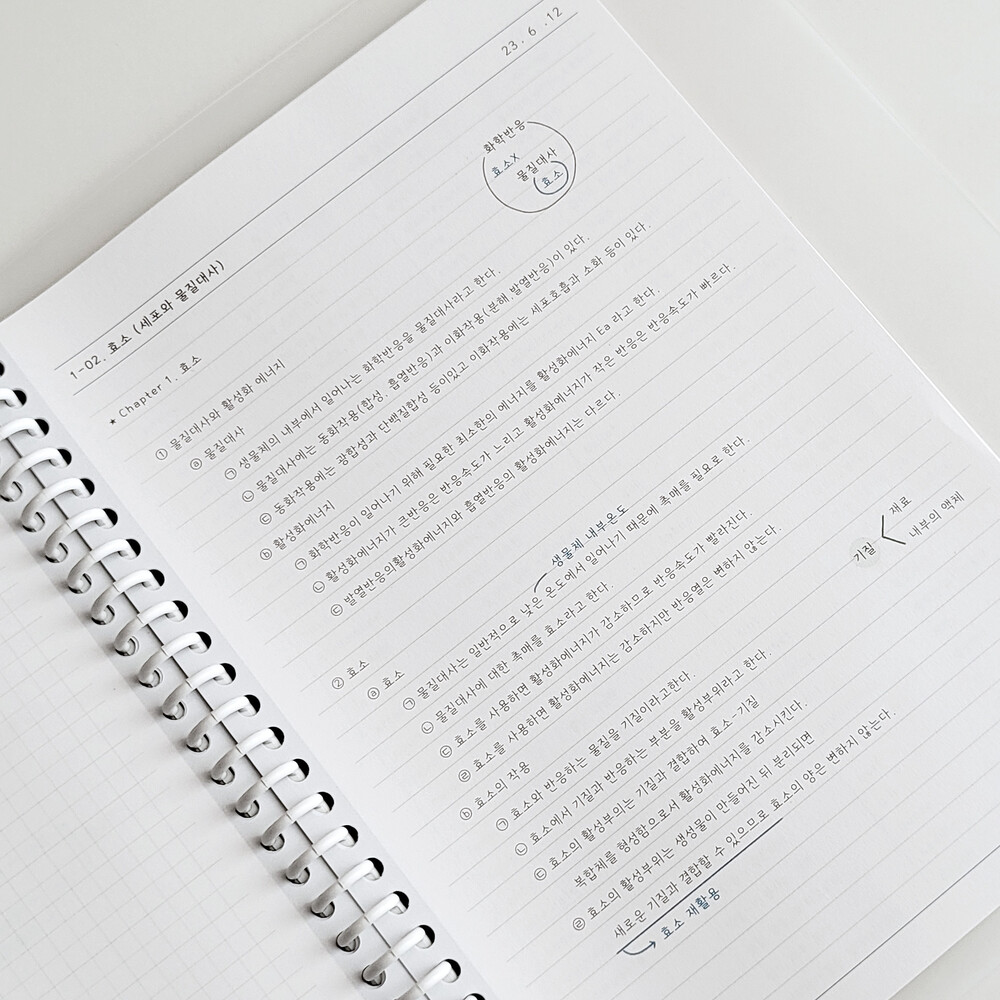 23. 6. 12
1-02. 효소 (세포와 물질대사)
화학반응
효소X
물질대사
효소
★ Chapter 1. 효소
① 물질대사와 활성화 에너지
ⓐ 물질대사
㉠ 생물체의 내부에서 일어나는 화학반응을 물질대사라고 한다.
㉡ 물질대사에는 동화작용(합성, 흡열반응)과 이화작용(분해, 발열반응)이 있다.
㉢ 동화작용에는 광합성과 단백질합성 등이있고 이화작용에는 세포호흡과 소화 등이 있다.
ⓑ 활성화에너지
㉠ 화학반응이 일어나기 위해 필요한 최소한의 에너지를 활성화에너지 Ea 라고 한다.
㉡ 활성화에너지가 큰반응은 반응속도가 느리고 활성화에너지가 작은 반응은 반응속도가 빠르다.
㉢ 발열반응의활성화에너지와 흡열반응의 활성화에너지는 다르다.
② 효소
ⓐ 효소
생물체 내부온도
㉠ 물질대사는 일반적으로 낮은 온도에서 일어나기 때문에 촉매를 필요로 한다.
㉡ 물질대사에 대한 촉매를 효소라고 한다.
㉢ 효소를 사용하면 활성화에너지가 감소하므로 반응속도가 빨라진다.
㉣ 효소를 사용하면 활성화에너지는 감소하지만 반응열은 변하지 않는다.
기질
재료
내부의 액체
ⓑ 효소의 작용
㉠ 효소와 반응하는 물질을 기질이라고한다.
㉡ 효소에서 기질과 반응하는 부분을 활성부위라고 한다.
㉢ 효소의 활성부의는 기질과 결합하여 효소-기질
복합체를 형성함으로서 활성화에너지를 감소시킨다.
㉣ 효소의 활성부위는 생성물이 만들어진 뒤 분리되면
새로운 기질과 결합할 수 있으므로 효소의 양은 변하지 않는다.
효소 재활용